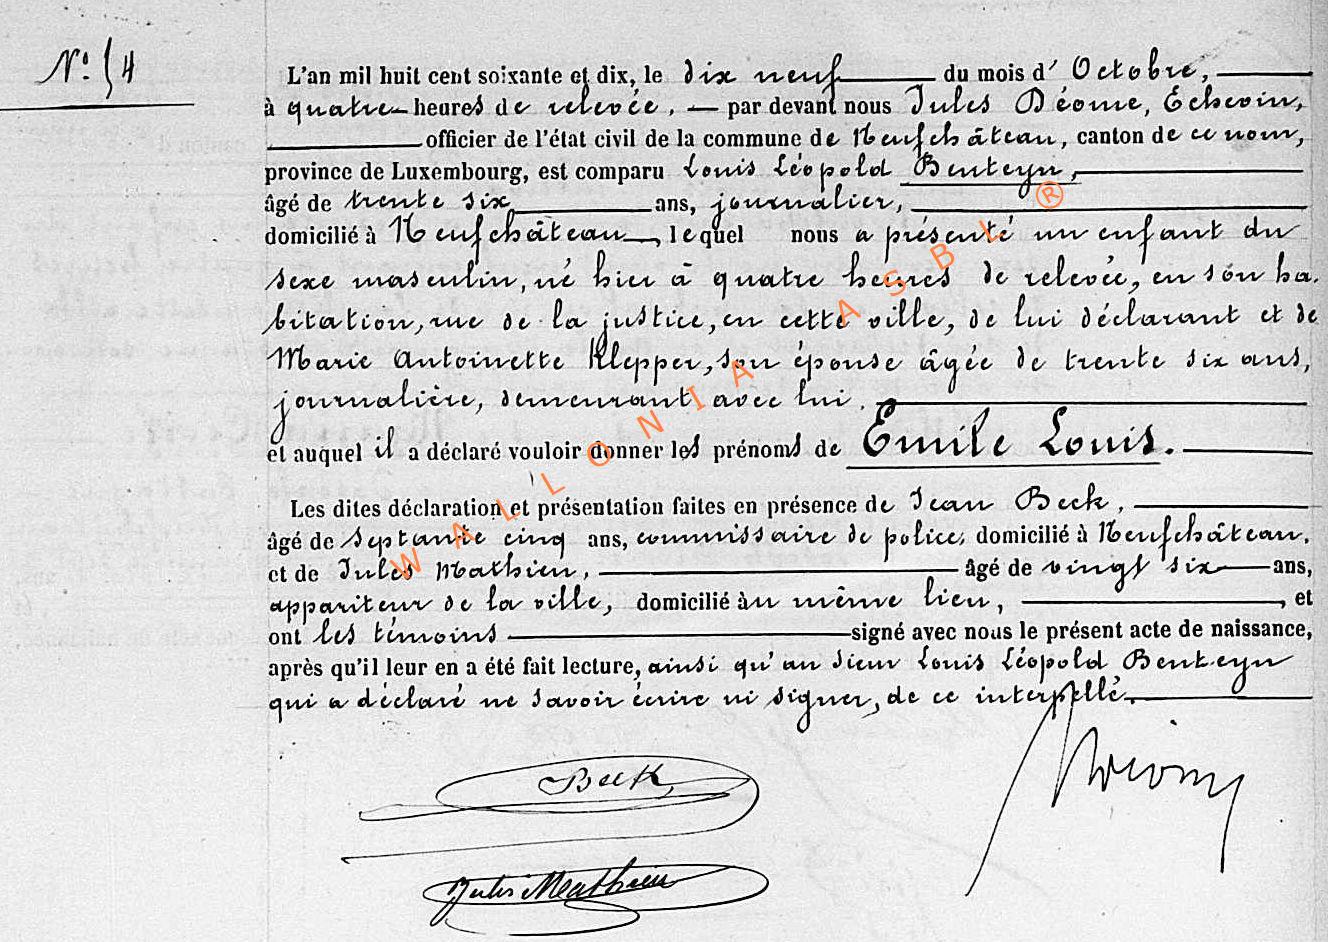 N° 54
L'an mil huit cent soixante et dix, le dix neuf du mois d' Octobre,
à quatre heures de relevée, par devant nous Jules Déome, Échevin,
officier de l'état civil de la commune de Neufchâteau, canton de ce nom,
province de Luxembourg, est comparu Louis Léopold Benteyn,
âgé de trente six ans, journalier,
domicilié à Neufchâteau, lequel nous a présenté un enfant du
sexe masculin, né hier à quatre heures de relevée, en son ha-
bitation, rue de la justice, en cette ville, de lui déclarant et de
Marie Antoinette Klepper, son épouse âgée de trente six ans,
journalière, demeurant avec lui.
et auquel il a déclaré vouloir donner les prénoms de Emile Louis.
Les dites déclaration et présentation faites en présence de Jean Beck,
âgé de septante cinq ans, commissaire de police, domicilié à Neufchâteau,
et de Jules Mathieu, âgé de vingt six ans,
appariteur de la ville, domicilié au même lieu, et
ont les témoins signé avec nous le présent acte de naissance,
après qu'il leur en a été fait lecture, ainsi qu'au sieur Louis Léopold Benteyn
qui a déclaré ne savoir écrire ni signer, de ce interpellé.
Beck
Jules Mathieu
WALLONIA ASBL ®